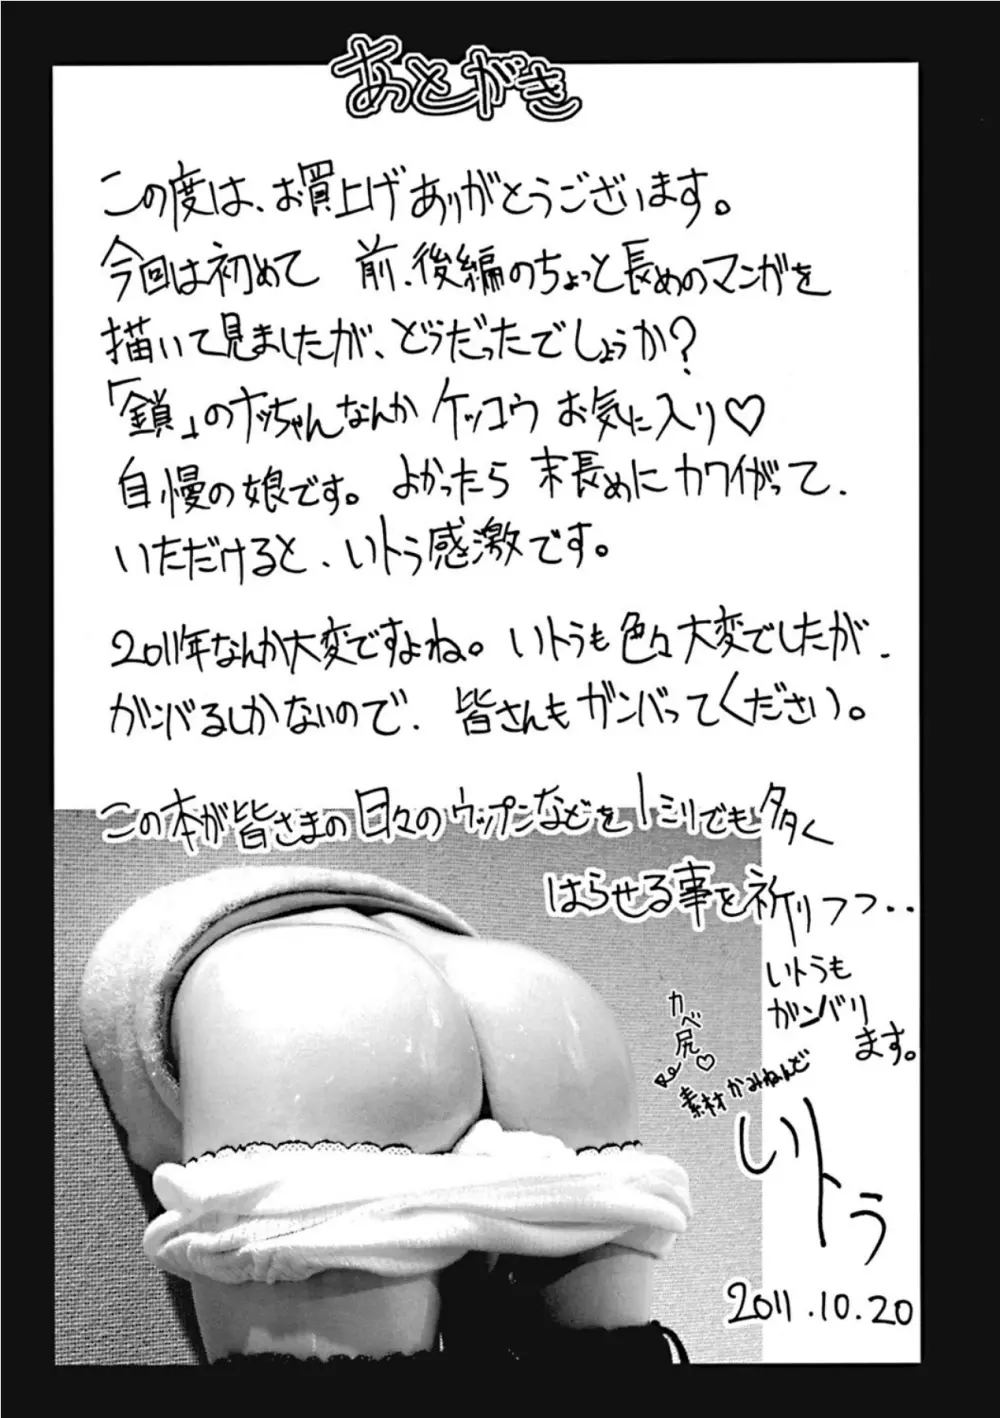 あとがき
この度は、お買上げありがとうございます。
今回は初めて 前、後編のちょっと長めのマンガを
描いて見ましたが、どうだったでしょうか?
「鎖」のナッちゃんなんか ケッコウ お気に入り♡
自慢の娘です。よかったら 末長めにカワイがって、
いただけると、いトう感激です。
2011年なんか大変ですよね。いトうも色々大変でしたが、
ガンバるしかないので、皆さんもガンバってください。
この本が皆さまの日々のウップンなどを1ミリでも多く
はらせる事を祈りつつ..
いトうも
ガンバリ
ます。
カベ尻♡
素材かみねんど
いトう
2011.10.20